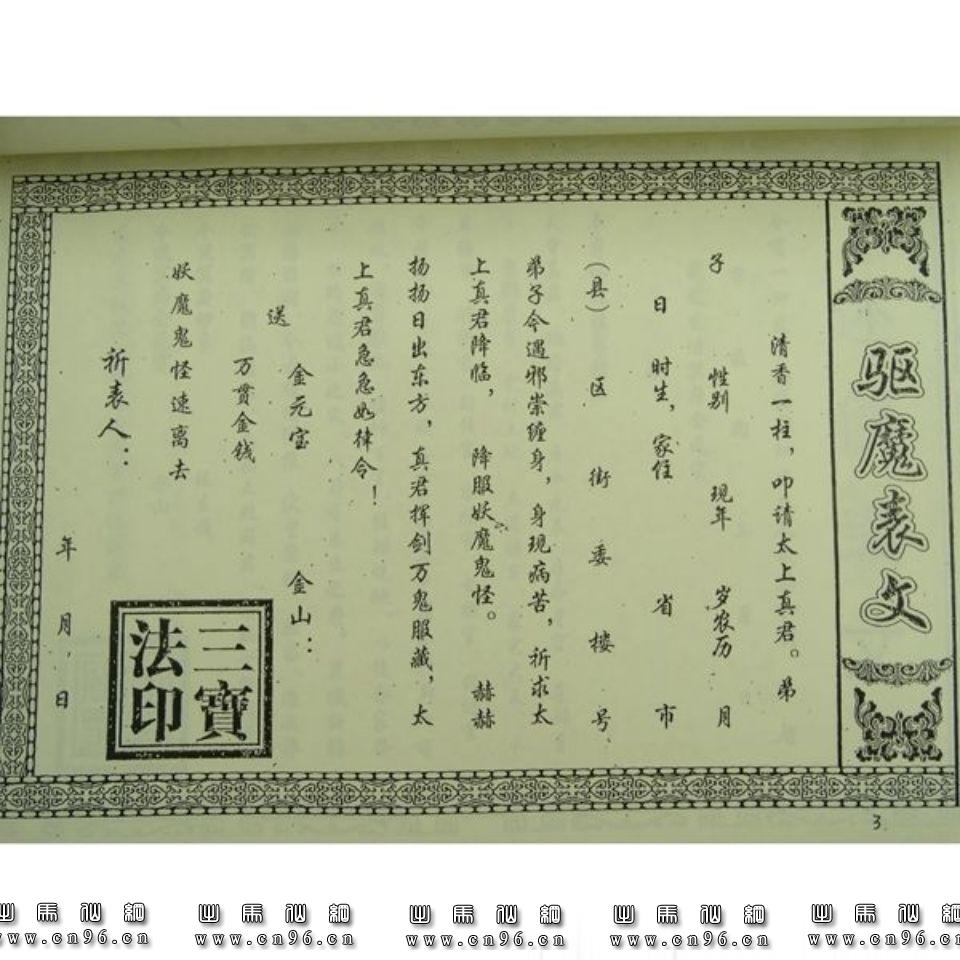 驱魔表文
清香一柱，叩请太上真君。弟
子 性别 现年 岁农历 月
日 时生，家住 省 市
（县） 区 街 委 楼 号
弟子今遇邪祟缠身，身现病苦，祈求太
上真君降临， 降服妖魔鬼怪。 赫赫
扬扬日出东方，真君挥剑万鬼服藏，太
上真君急急如律令！
金元宝 金山：
送
万贯金钱
妖魔鬼怪速离去
祈表人：
年 月 日
三寳
法印
3
出馬仙網 出馬仙網 出馬仙網 出馬仙網 出馬仙網
www.cn96.com www.cn96.com www.cn96.com www.cn96.com www.cn96.com